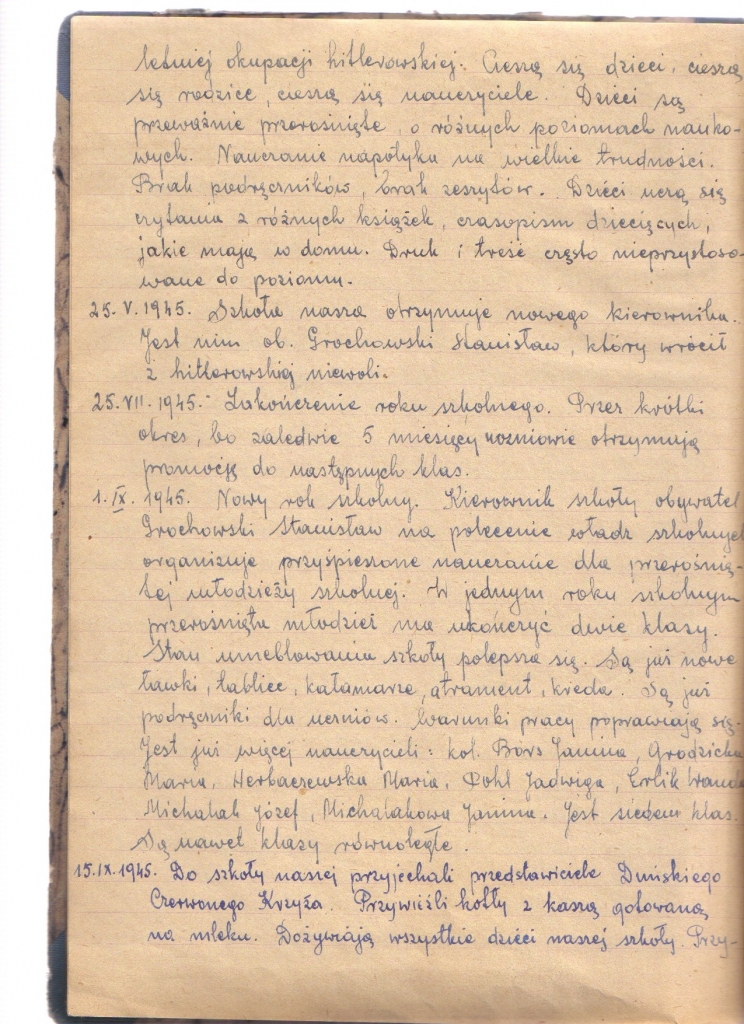 letniej okupacji hitlerowskiej. Cieszą się dzieci, cieszą
się rodzice, cieszą się nauczyciele. Dzieci są
przeważnie przerośnięte, o różnych poziomach nauko-
wych. Nauczanie napotyka na wielkie trudności.
Brak podręczników, brak zeszytów. Dzieci uczą się
czytania z różnych książek, czasopism dziecięcych,
jakie mają w domu. Druk i treść często nieprzystoso-
wane do poziomu.
25. V. 1945. Szkoła nasza otrzymuje nowego kierownika.
Jest nim ob. Grochowski Stanisław, który wrócił
z hitlerowskiej niewoli.
25. VII. 1945. Zakończenie roku szkolnego. Przez krótki
okres, bo zaledwie 5 miesięcy uczniowie otrzymują
promocję do następnych klas.
1. IX. 1945. Nowy rok szkolny. Kierownik szkoły obywatel
Grochowski Stanisław na polecenie władz szkolnych
organizuje przyśpieszone nauczanie dla przerośnię-
tej młodzieży szkolnej. W jednym roku szkolnym
przerośnięta młodzież ma ukończyć dwie klasy.
Stan umeblowania szkoły polepsza się. Są już nowe
ławki, tablice, kałamarze, atrament, kreda. Są już
podręczniki dla uczniów. Warunki pracy poprawiają się.
Jest już więcej nauczycieli: kol. Bors Janina, Grodzicka
Maria, Herbaczewska Maria, Pohl Jadwiga, Erlik Wanda
Michalak Józef, Michalakowa Janina. Jest siedem klas.
Są nawet klasy równoległe.
15. IX. 1945. Do szkoły naszej przyjechali przedstawiciele Duńskiego
Czerwonego Krzyża. Przywieźli kotły z kaszą gotowaną
na mleku. Dożywiają wszystkie dzieci naszej szkoły. Przy-